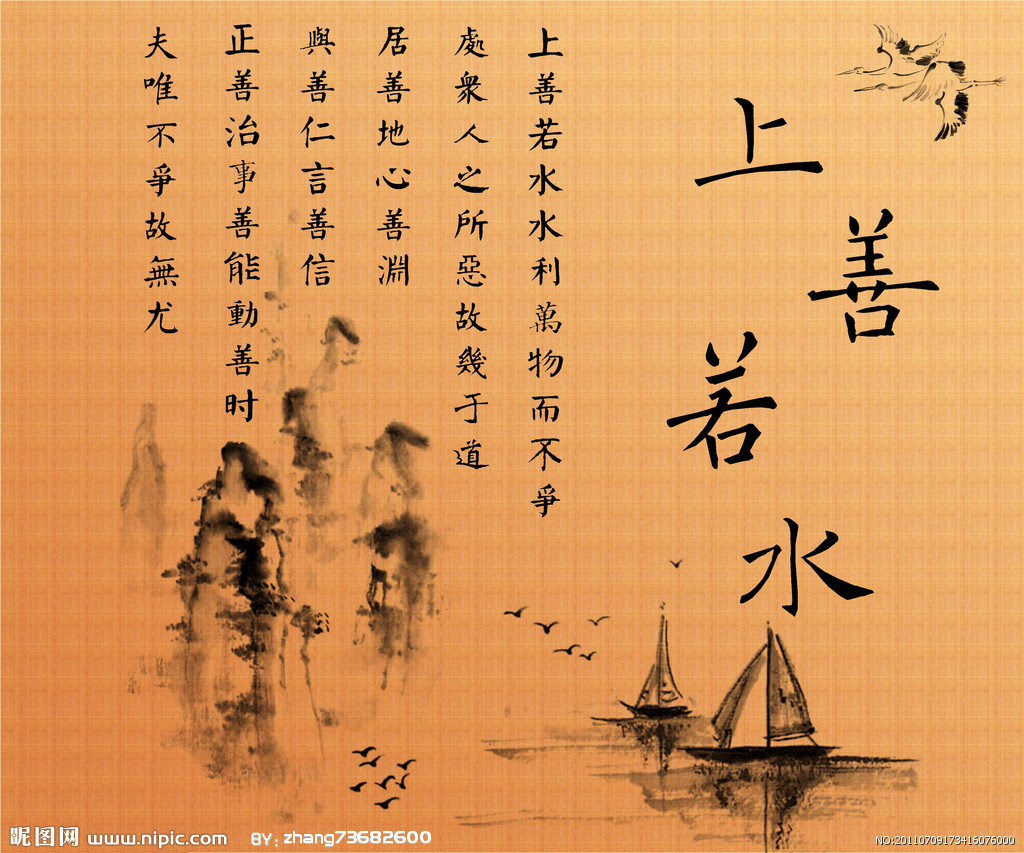 上善若水
上善若水水利萬物而不爭
處衆人之所惡故幾于道
居善地心善淵
與善仁言善信
正善治事善能動善时
夫唯不爭故無尤
昵图网 www.nipic.com BY: zhang73682600
NO:20110709173416076000